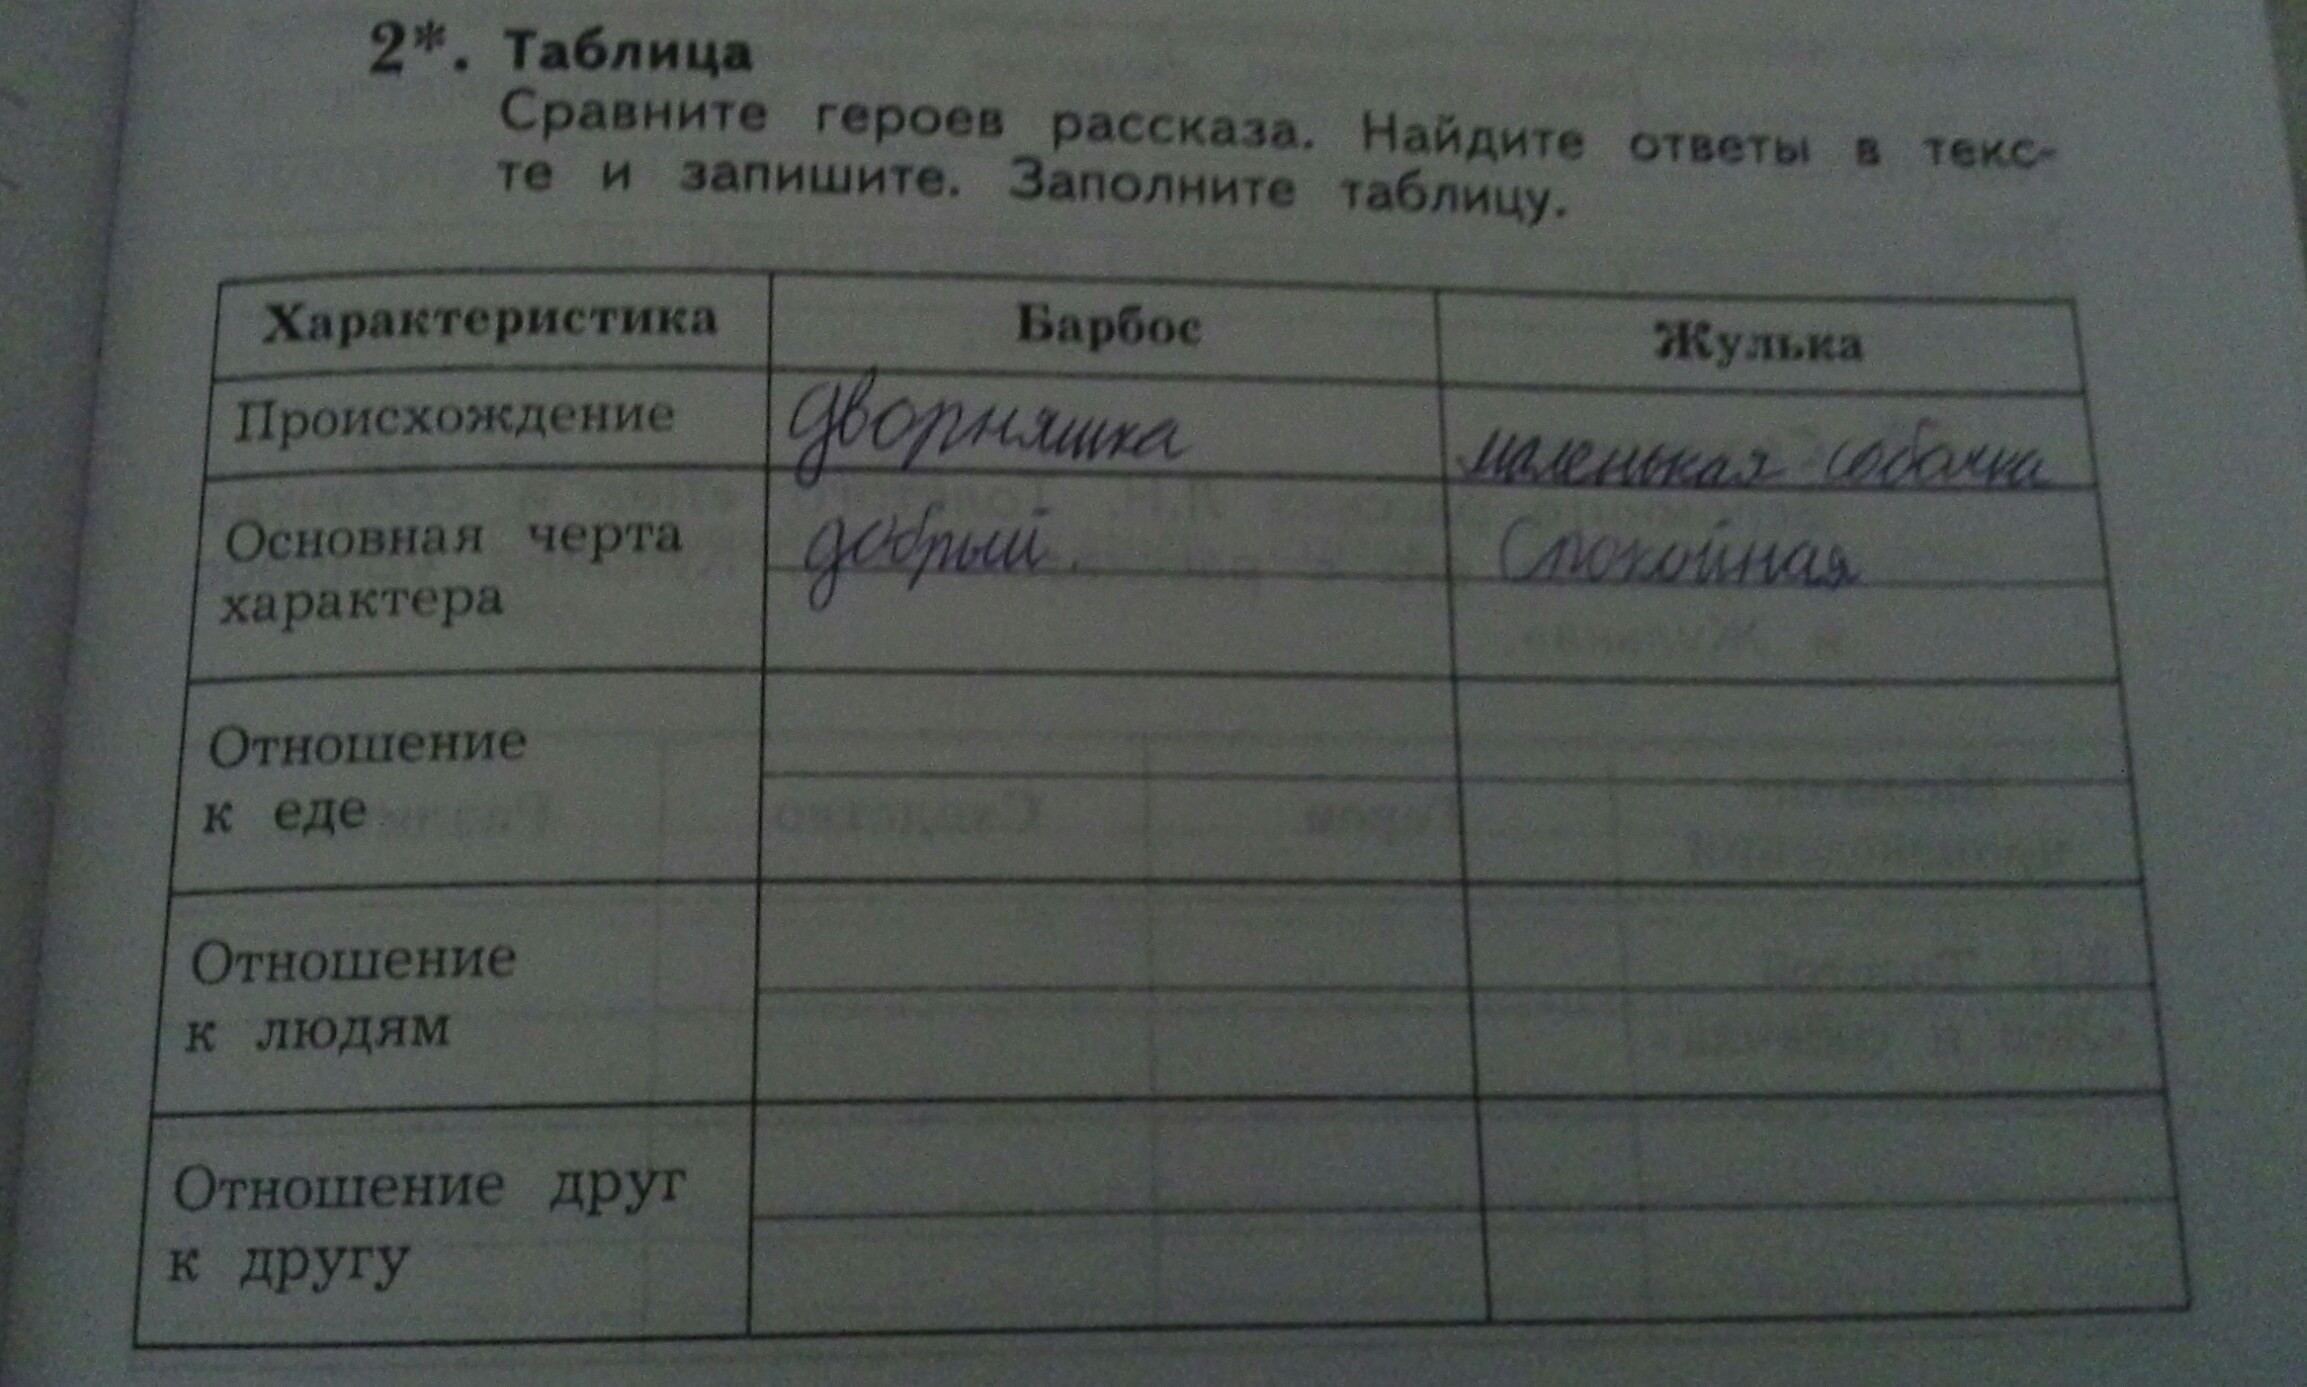 2*. Таблица
Сравните героев рассказа. Найдите ответы в текс-
те и запишите. Заполните таблицу.
Характеристика Барбос Жулька
Происхождение дворняшка маленькая собачка
Основная черта
характера добрый. Спокойная
Отношение
к еде
Отношение
к людям
Отношение друг
к другу